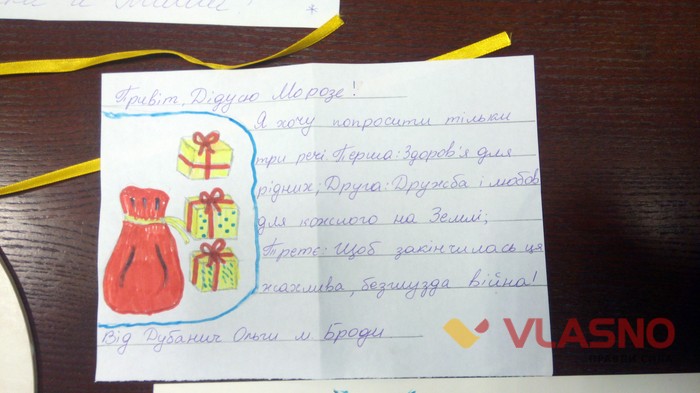 Привіт, Дідусю Морозе!
Я хочу попросити тільки
три речі. Перша: Здоров'я для
рідних; Друга: Дружба і любов
для кожного на Землі;
Третє: Щоб закінчилась ця
жахлива, безглузда війна!
Від Дубанич Ольги м. Броди
VLASNO